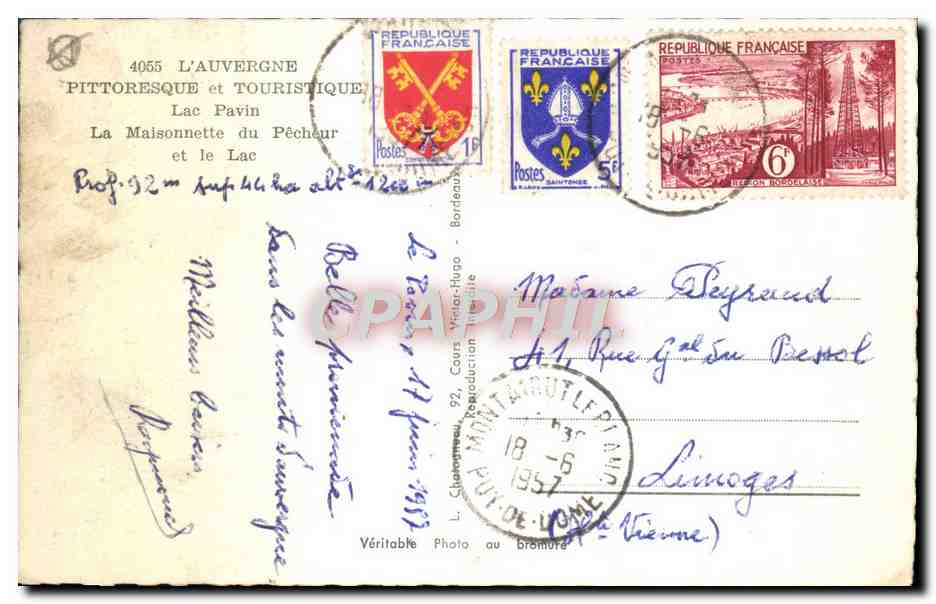 4055 L'AUVERGNE
PITTORESQUE et TOURISTIQUE
Lac Pavin
La Maisonnette du Pêcheur
et le Lac
Prof. 92m Sup. 44ha alt. 1200m
Le 17 juin 1957
Belle promenade
dans les monts d'Auvergne
Meilleurs baisers
L. Chatagneau, 92, Cours Victor-Hugo - Bordeaux
Reproduction interdite
Véritable Photo au bromure
REPUBLIQUE
FRANÇAISE
Postes 1F
REPUBLIQUE
FRANÇAISE
Postes 5F
SAINTONGE
REPUBLIQUE FRANÇAISE
POSTES
6F
REGION BORDELAISE
18 -6
Madame Peyraud
41, Rue Gal du Bessol
Limoges
(Hte Vienne)
MONTAIGUT LE BLANC
18 -6
1957
PUY-DE-DOME
CPAPHIL